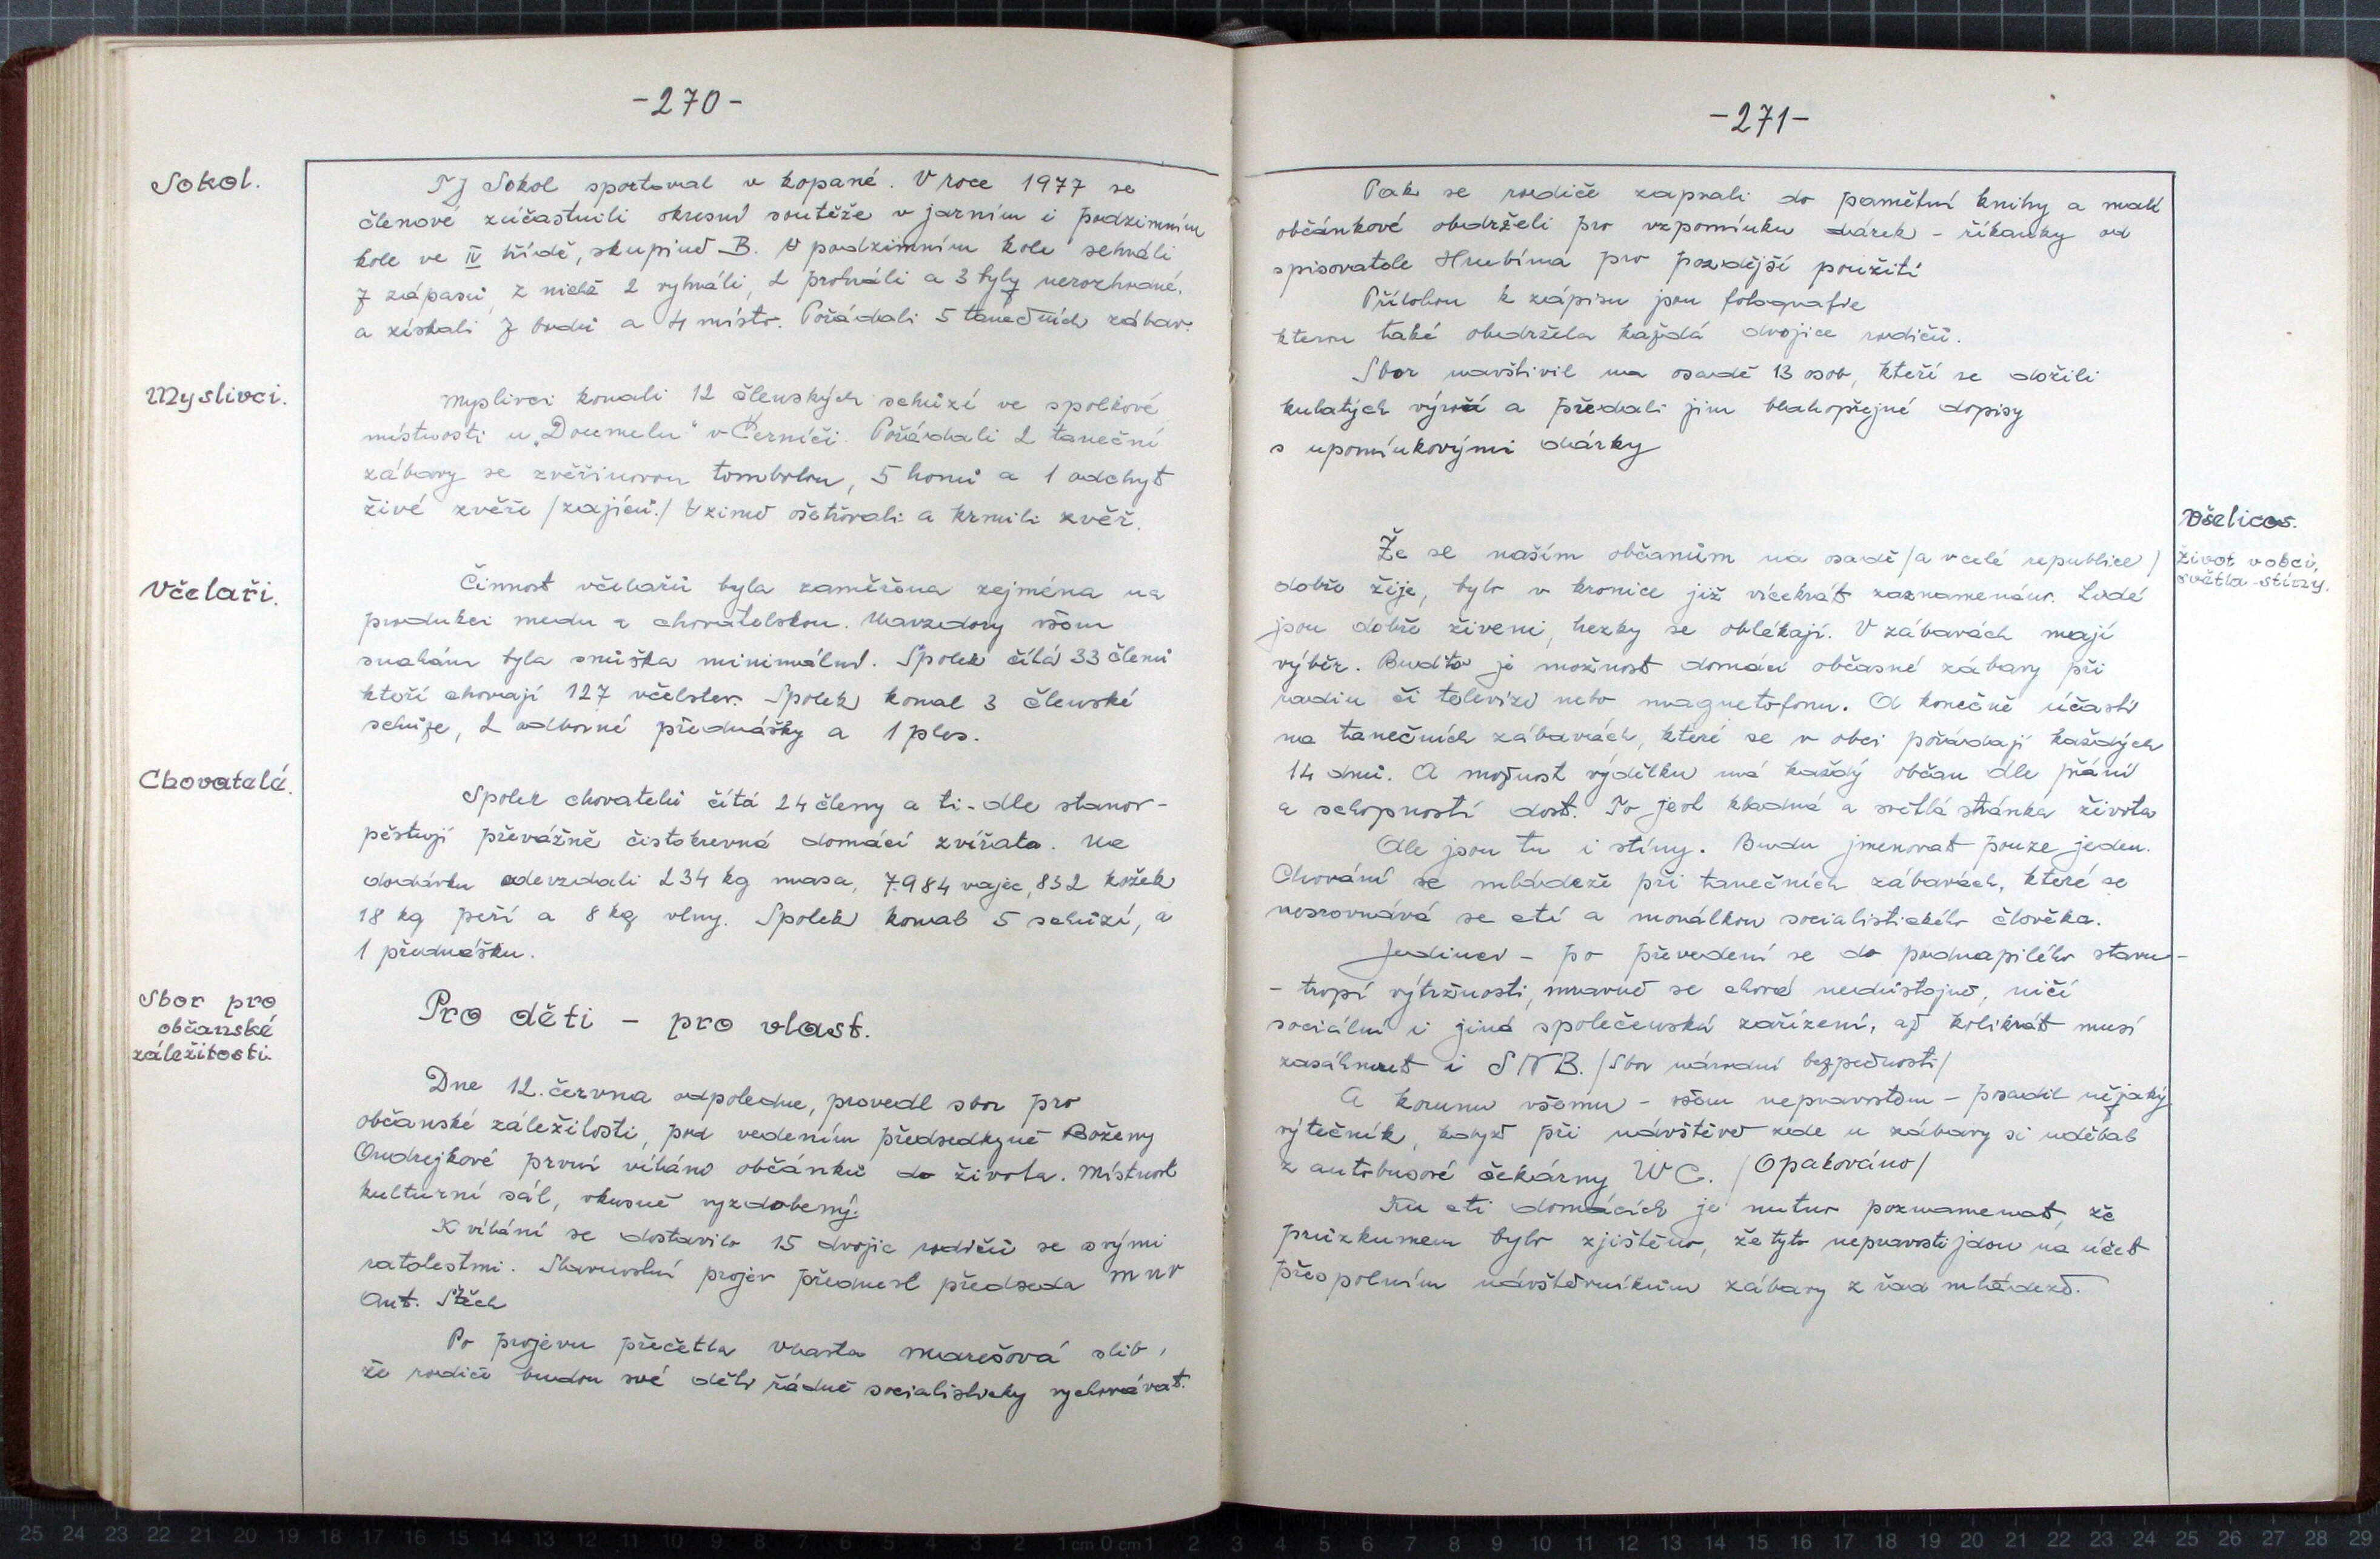 -270-
Sokol.
TJ Sokol sportoval v kopané. V roce 1977 se
členové zúčastnili okresní soutěže v jarním i podzimním
kole ve IV třídě, skupině B. V podzimním kole sehráli
7 zápasů, z nichž 2 vyhráli, 2 prohráli a 3 byly nerozhodné.
a získali 7 bodů a 4 místo. Pořádali 5 tanečních zábav.
Myslivci.
Myslivci konali 12 členských schůzí ve spolkové
místnosti u "Doumelu" v Černíči. Pořádali 2 taneční
zábavy se zvěřinovou tombolou, 5 honů a 1 odchyt
živé zvěře /zajíců./ V zimě ošetřovali a krmili zvěř.
Včelaři.
Činnost včelařů byla zaměřena zejména na
produkci medu a chovatelskou. Navzdory všem
snahám byla snůška minimální. Spolek čítá 33 členů
kteří chovají 127 včelstev. Spolek konal 3 členské
schůze, 2 odborné přednášky a 1 ples.
Chovatelé.
Spolek chovatelů čítá 24 členy a ti - dle stanov -
pěstují převážně čistokrevná domácí zvířata. Na
dodávku odevzdali 234 kg masa, 7.984 vajec, 832 kožek
18 kg peří a 8 kg vlny. Spolek konal 5 schůzí, a
1 přednášku.
Sbor pro
občanské
záležitosti.
Pro děti - pro vlast.
Dne 12. června odpoledne, provedl sbor pro
občanské záležitosti, pod vedením předsedkyně Boženy
Ondrejkové první vítání občánků do života. Místnost
kulturní sál, vkusně vyzdobený.
K vítání se dostavilo 15 dvojic rodičů se svými
ratolestmi. Slavnostní projev přednesl předseda MNV
Ant. Štěch
Po projevu přečetla Vlasta Marešová slib,
že rodiče budou své děti řádně socialisticky vychovávat.
-271-
Pak se rodiče zapsali do pamětní knihy a malí
občánkové obdrželi pro vzpomínku dárek - říkanky od
spisovatele Hrubína pro pozdější použití
Přílohou k zápisu jsou fotografie
kterou také obdržela každá dvojice rodičů.
Sbor navštívil na osadě 13 osob, kteří se dožili
kulatých výročí a předali jim blahopřejné dopisy
s upomínkovými dárky
Všelicos.
život v obci,
světla - stíny.
Že se našim občanům na osadě /a v celé republice/
dobře žije, bylo v kronice již vícekrát zaznamenáno. Lidé
jsou dobře živeni, hezky se oblékají. V zábavách mají
výběr. Buďto je možnost domácí občasné zábavy při
radiu či televizi nebo magnetofonu. A konečně účasti
na tanečních zábavách, které se v obci pořádají každých
14 dnů. A možnost výdělku má každý občan dle přání
a schopností dost. To jest kladná a světlá stránka života
Ale jsou tu i stíny. Budu jmenovat pouze jeden.
Chování se mládeže při tanečních zábavách, které se
nesrovnává se ctí a morálkou socialistického člověka.
Jedinci - po převedení se do podnapilého stavu -
- tropí výtržnosti, mravně se chová nedůstojně, ničí
sociální i jiná společenská zařízení, až kolikrát musí
zasáhnout i SNB. /Sbor národní bezpečnosti/
A korunu všemu - všem nepravostem - posadil nějaký
výtečník, když při návštěvě zde u zábavy si udělal
z autobusové čekárny WC. /Opakováno/
Ku cti domácích je nutno poznamenat, že
průzkumem bylo zjištěno, že tyto nepravosti jdou na účet
přespolním návštěvníkům zábavy z řad mládeže.
25 24 23 22 21 20 19 18 17 16 15 14 13 12 11 10 9 8 7 6 5 4 3 2 1 cm 0 cm 1 2 3 4 5 6 7 8 9 10 11 12 13 14 15 16 17 18 19 20 21 22 23 24 25 26 27 28 29